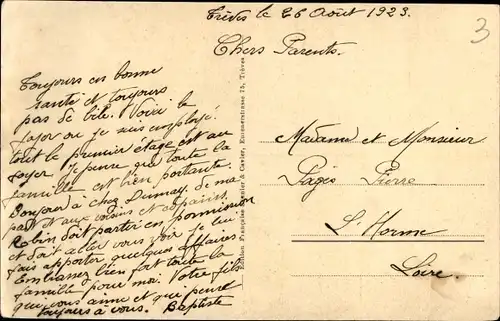 Trèves le 26 Août 1923.
3
Chers Parents.
Toujours en bonne
santé et toujours
pas de bile. Voici le
foyer ou je suis employé.
tout le premier étage est au
foyer. Je pense que toute la
famille est bien portante.
Bonjour à chez Dumay. de ma
part et aux voisins et copains
Robin doit partir en permission
et doit aller vous voir je lui
fais apporter quelques affaires
Embrassez bien fort toute la
famille pour moi. Votre fils
qui vous aime et que pense
toujours à vous. Baptiste
Edition Française & Cavier, 75, Trèves
Madame et Monsieur
Pagès Pierre
L'Horme
Loire.